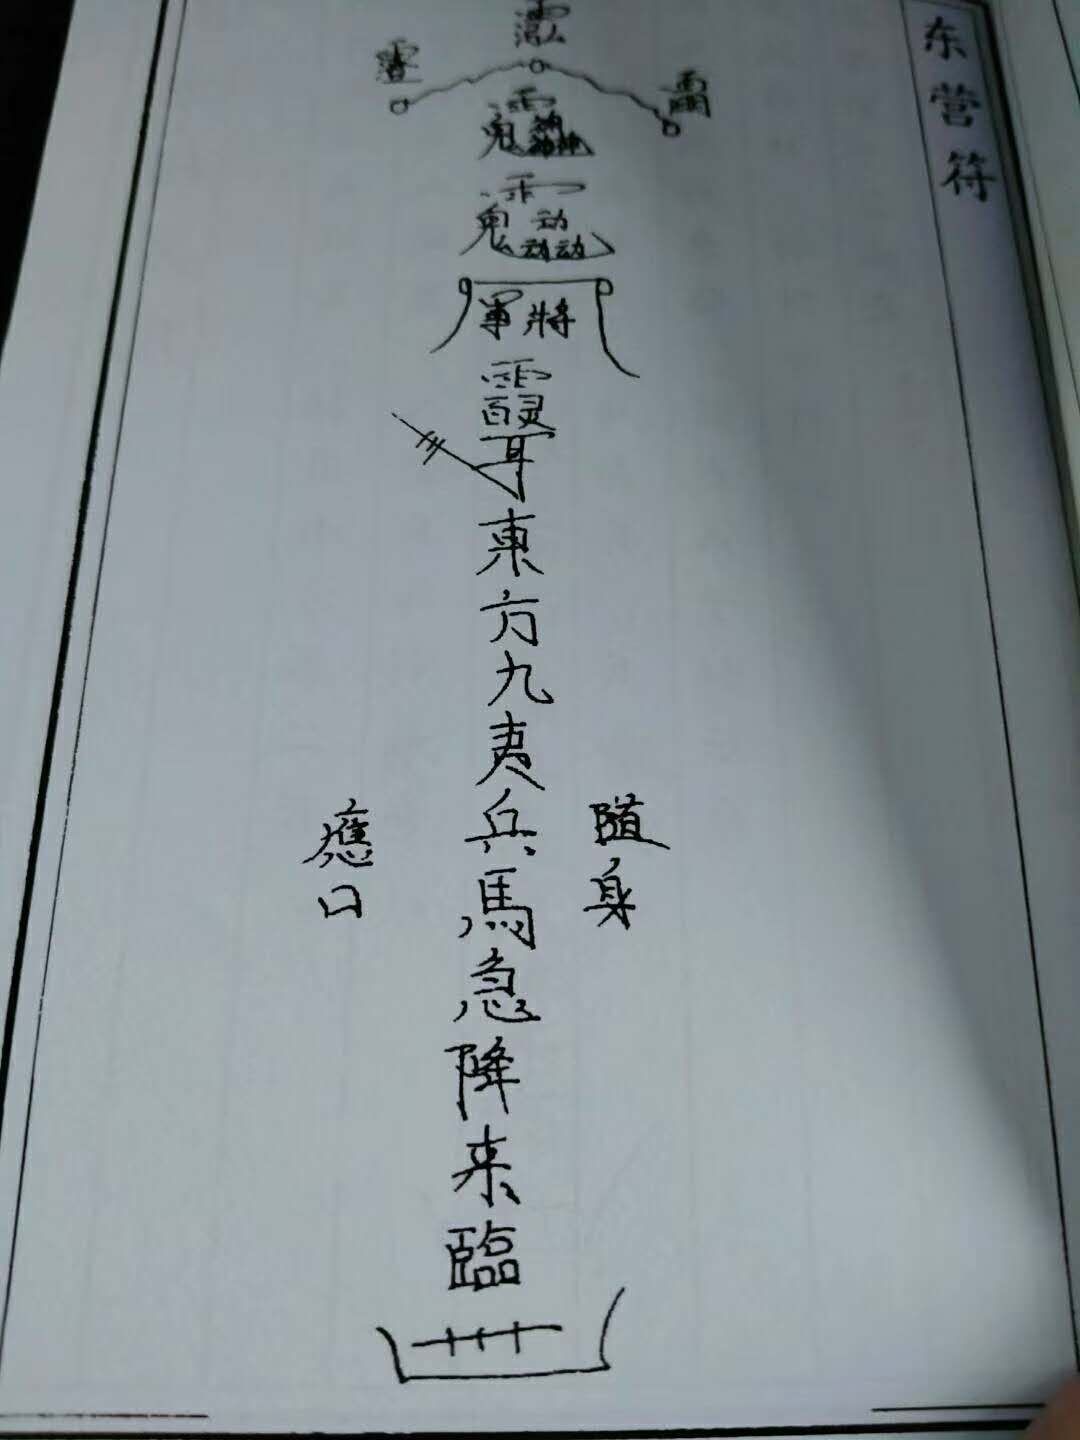 东营符
將軍
東方九夷兵馬急降来臨
随身
應口